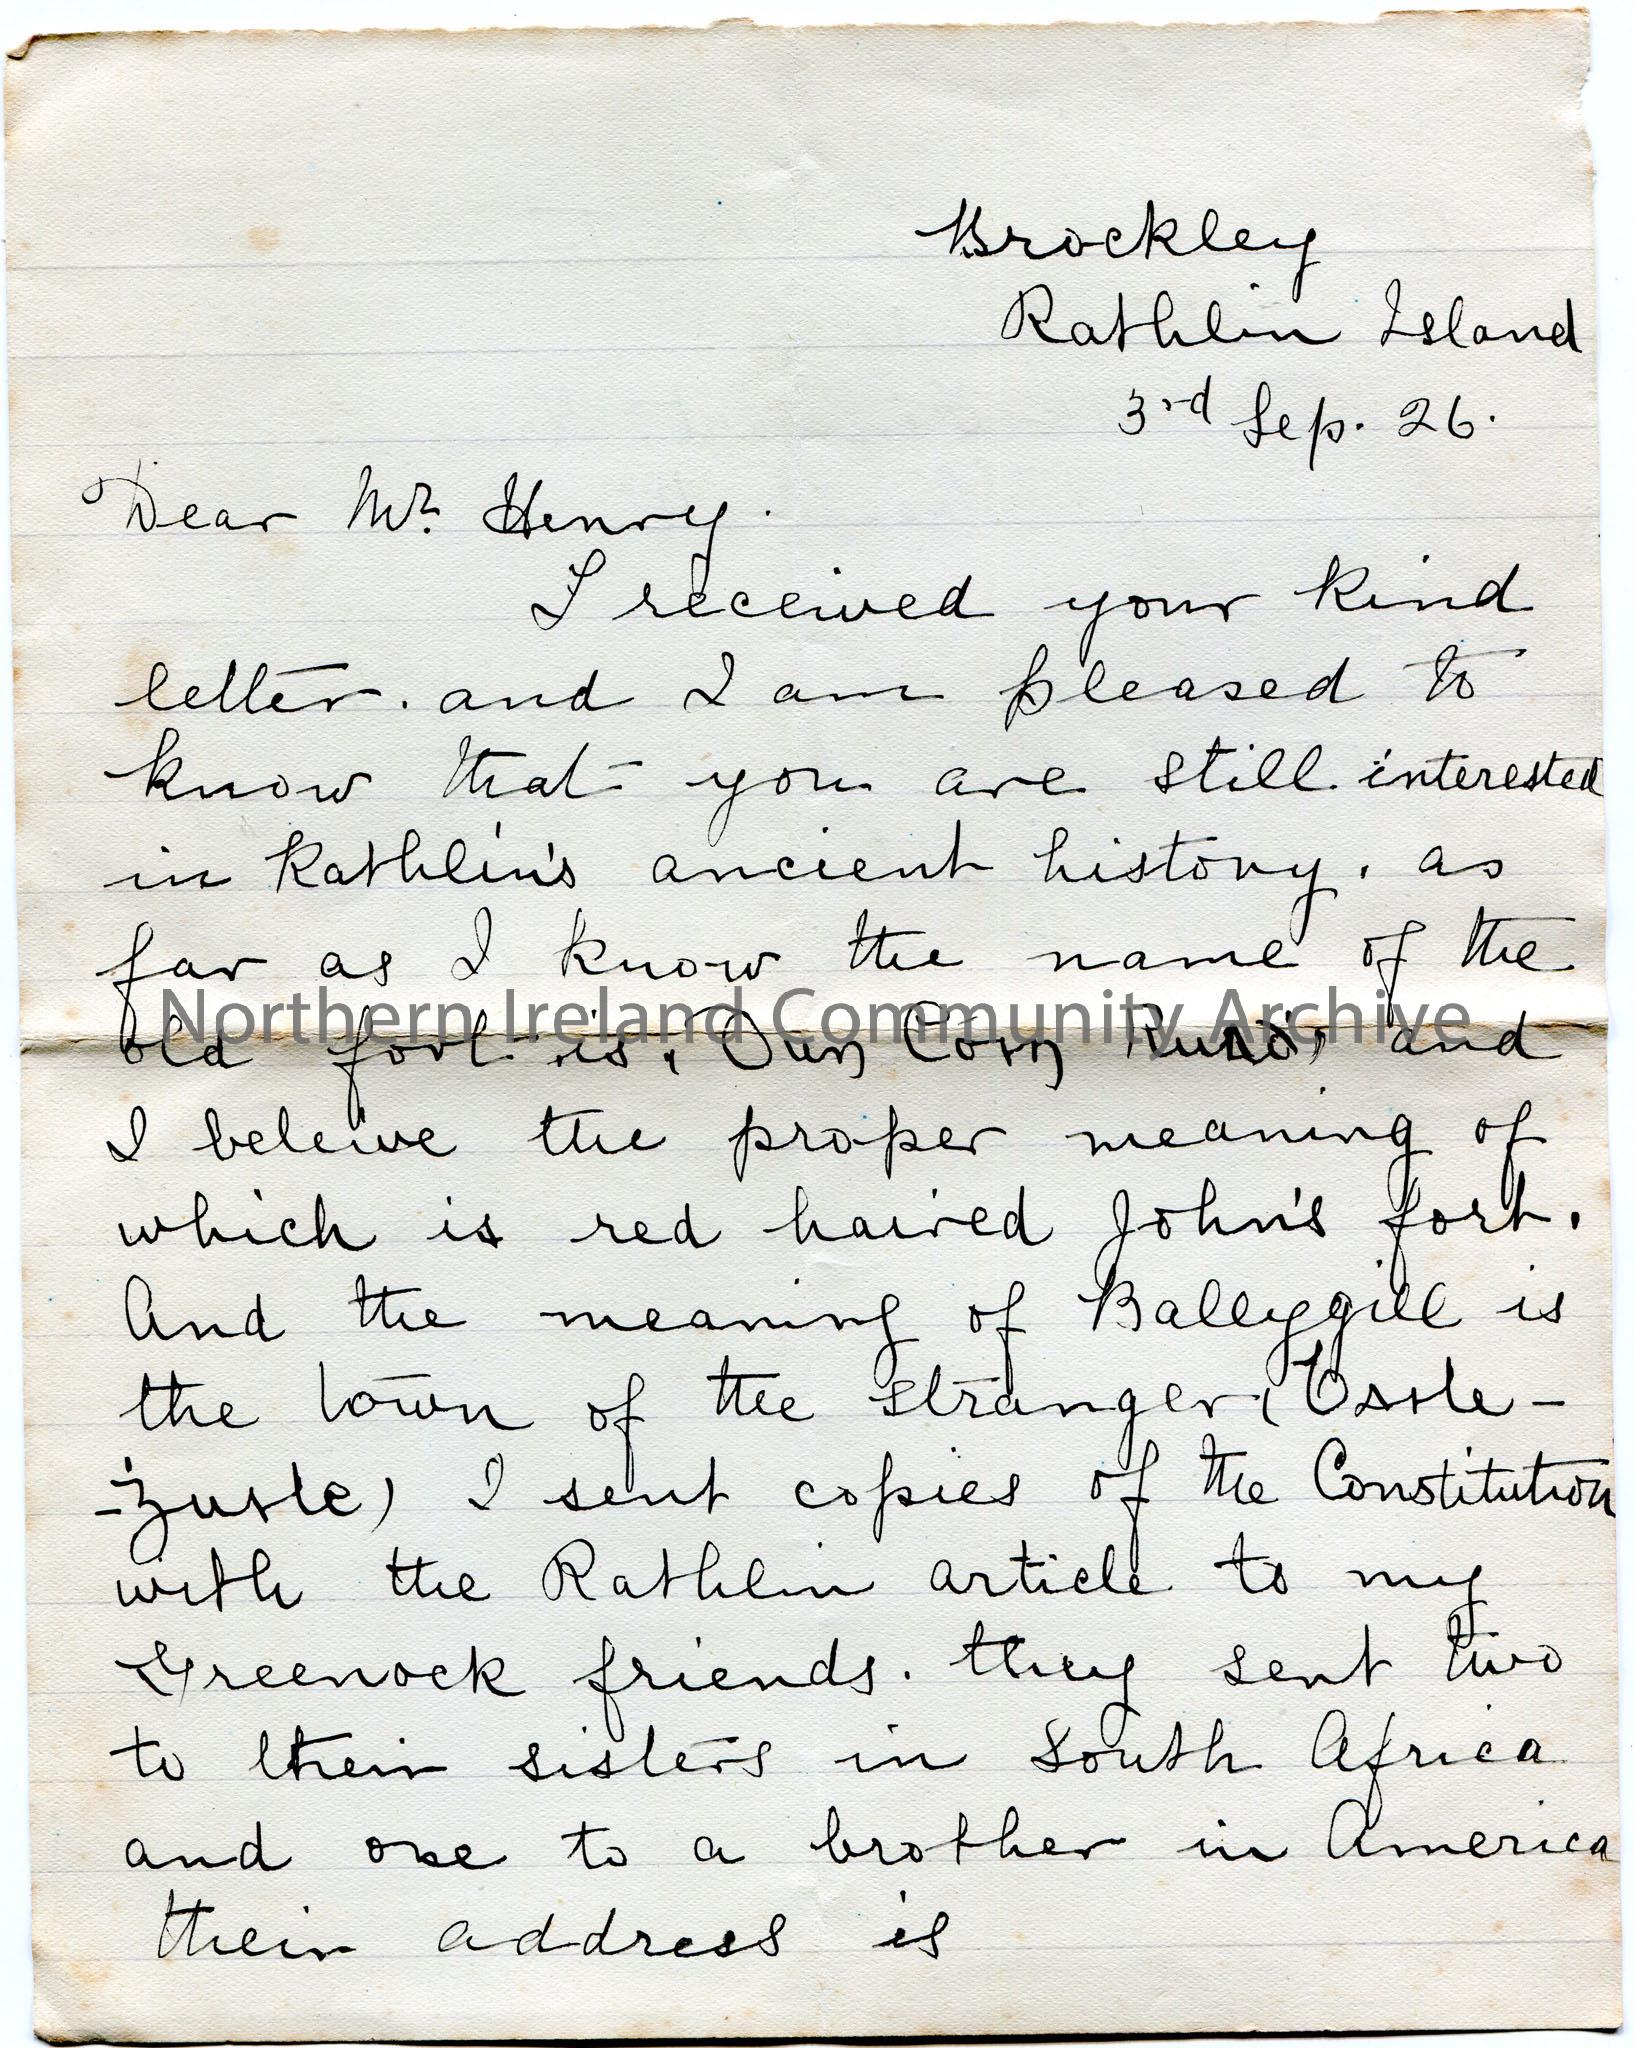 Brockley
Rathlin Island
3rd Sep. 26.
Dear Mr. Henry.
I received your kind
letter. and I am pleased to
know that you are still interested
in Rathlin's ancient history. as
far as I know the name of the
Northern Ireland Community Archive
old fort is, Dun Eoin and
I beleive the proper meaning of
which is red haired John's fort.
And the meaning of Ballygill is
the town of the stranger (
I sent copies of the Constitution
with the Rathlin article to my
Greenock friends. they sent two
to their sisters in South Africa
and one to a brother in America
their address is